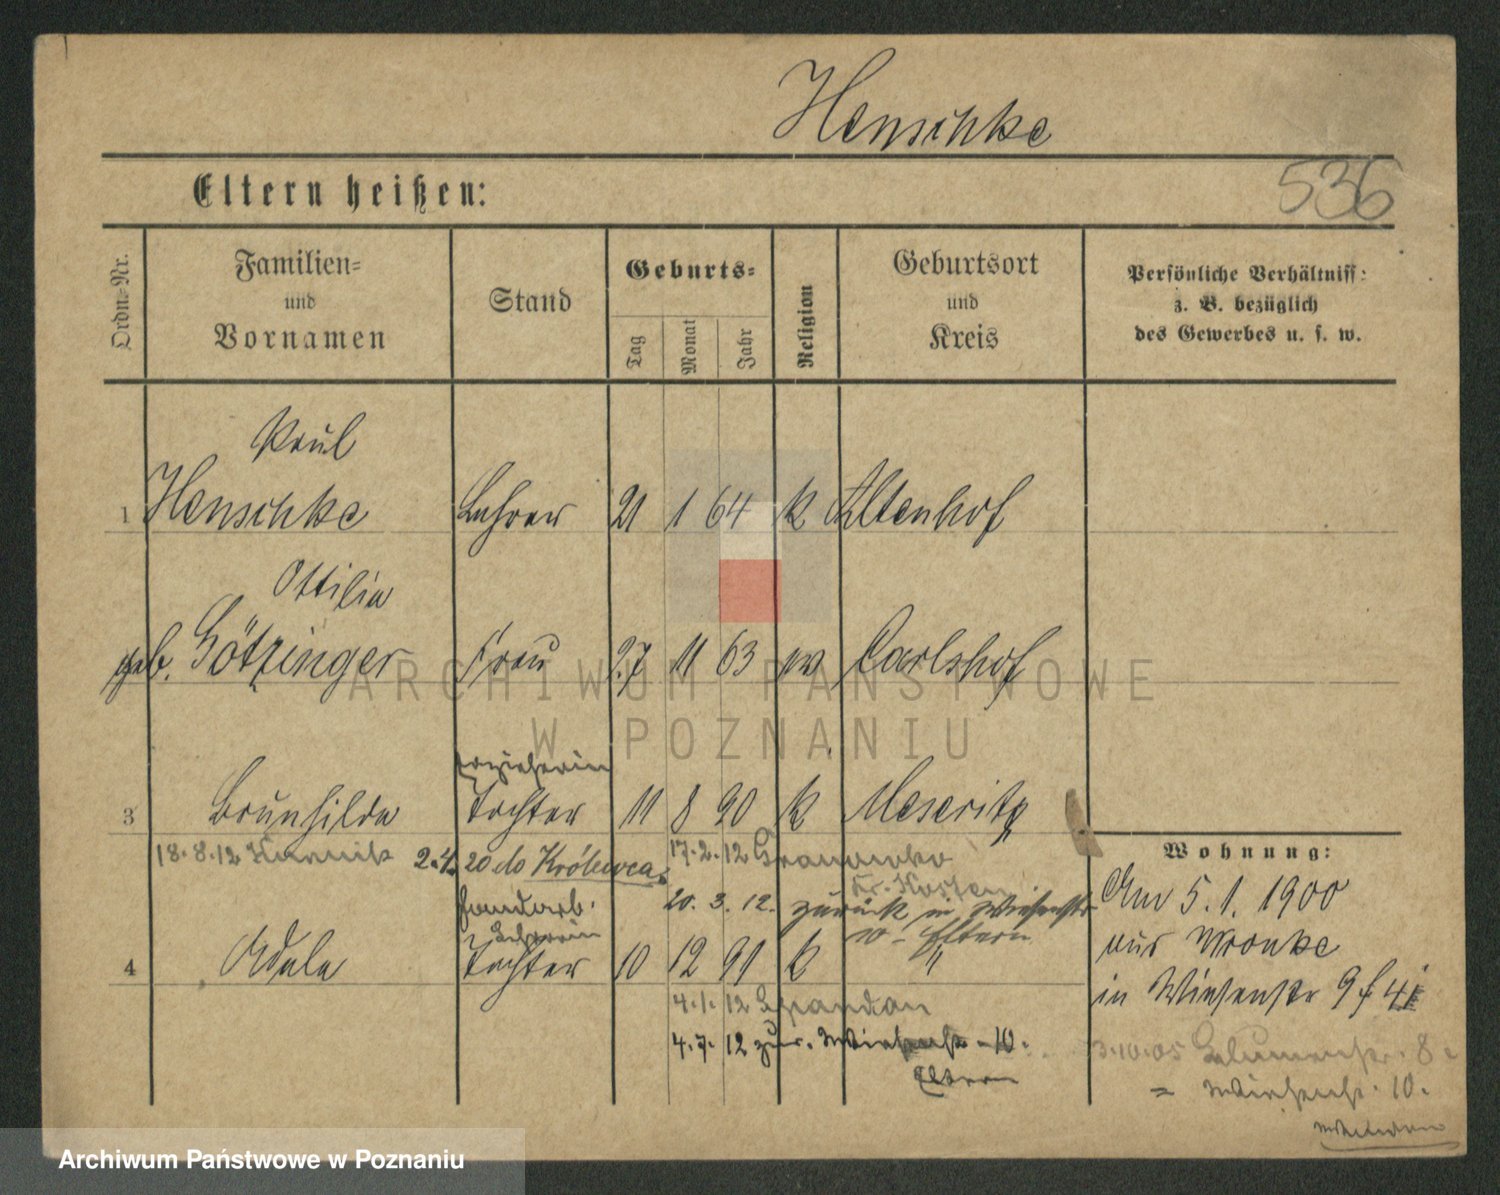 Henschke
536
Eltern heißen:
Ordn.-Nr.
Familien-
und
Vornamen
Stand
Geburts-
Tag
Monat
Jahr
Religion
Geburtsort
und
Kreis
Persönliche Verhältniss:
z. B. bezüglich
des Gewerbes u. s. w.
Paul
1 Henschke Lehrer 21 1 64 k Altenhof
Ottilie
geb. Götzinger Frau 27 11 63 ev Carlshof
Erzieherin
3 Brunhilde Tochter 11 8 90 k Meseritz
18.8.12 Kurnik 2.4. 20 do Królewca
17.2.12
Kr. Kosten
20.3.12. zurück in Wiesenstr
10 - Eltern
Handarb.
Lehrerin
4 Adele Tochter 10 12 91 k "
4.1.12 Spandau
4.7.12 zur. Wiesenstr. 10.
Eltern
Wohnung:
Am 5.1.1900
aus Wronke
in Wiesenstr 9
3.10.05 Blumenstr. 8
= Wiesenstr. 10.
ARCHIWUM PAŃSTWOWE
W POZNANIU
Archiwum Państwowe w Poznaniu